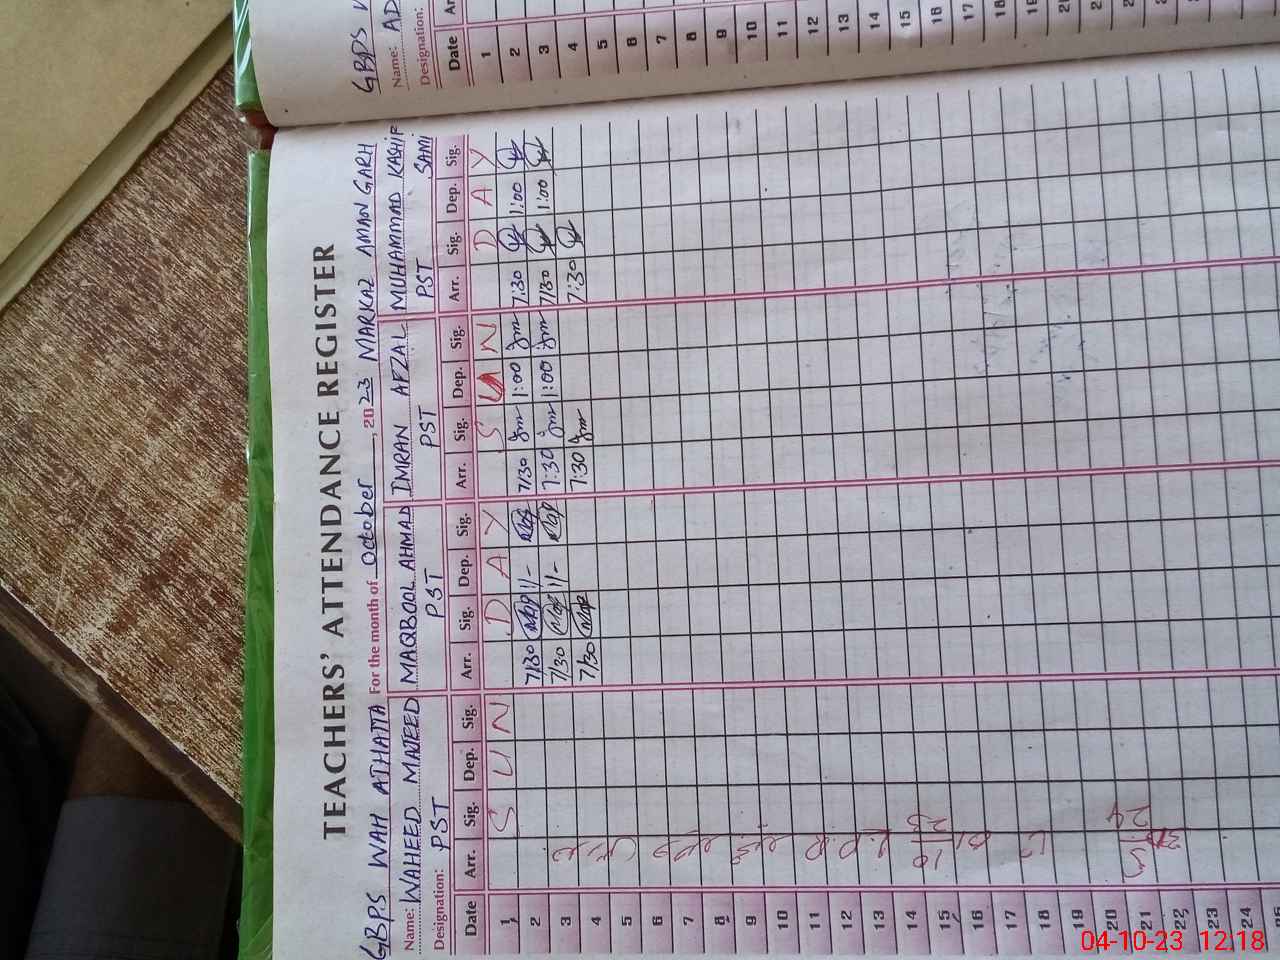 GBPS
Name: AD
Designation:
Date Ar
1
2
3
4
5
6
7
8
9
10
11
12
13
14
15
16
17
18
TEACHERS' ATTENDANCE REGISTER
GBPS WAH ATHATTA For the month of October, 2023 MARKAZ AMAN GARH
Name: WAHEED MAJEED MAQBOOL AHMAD IMRAN AFZAL MUHAMMAD KASHIF SAMI
Designation: PST PST PST PST
Date Arr. Sig. Dep. Sig. Arr. Sig. Dep. Sig. Arr. Sig. Dep. Sig. Arr. Sig. Dep. Sig.
1 S U N D A Y S U N D A Y
2 7/30 11- 7/30 1:00 7:30 1:00
3 7/30 11- 7:30 1:00 7/30 1:00
4 7/30 7:30 7:30
5
6
7
8
9
10
11
12
13
14
15
16
17
18
19
20
21
22
23
24
25
04-10-23 12:18